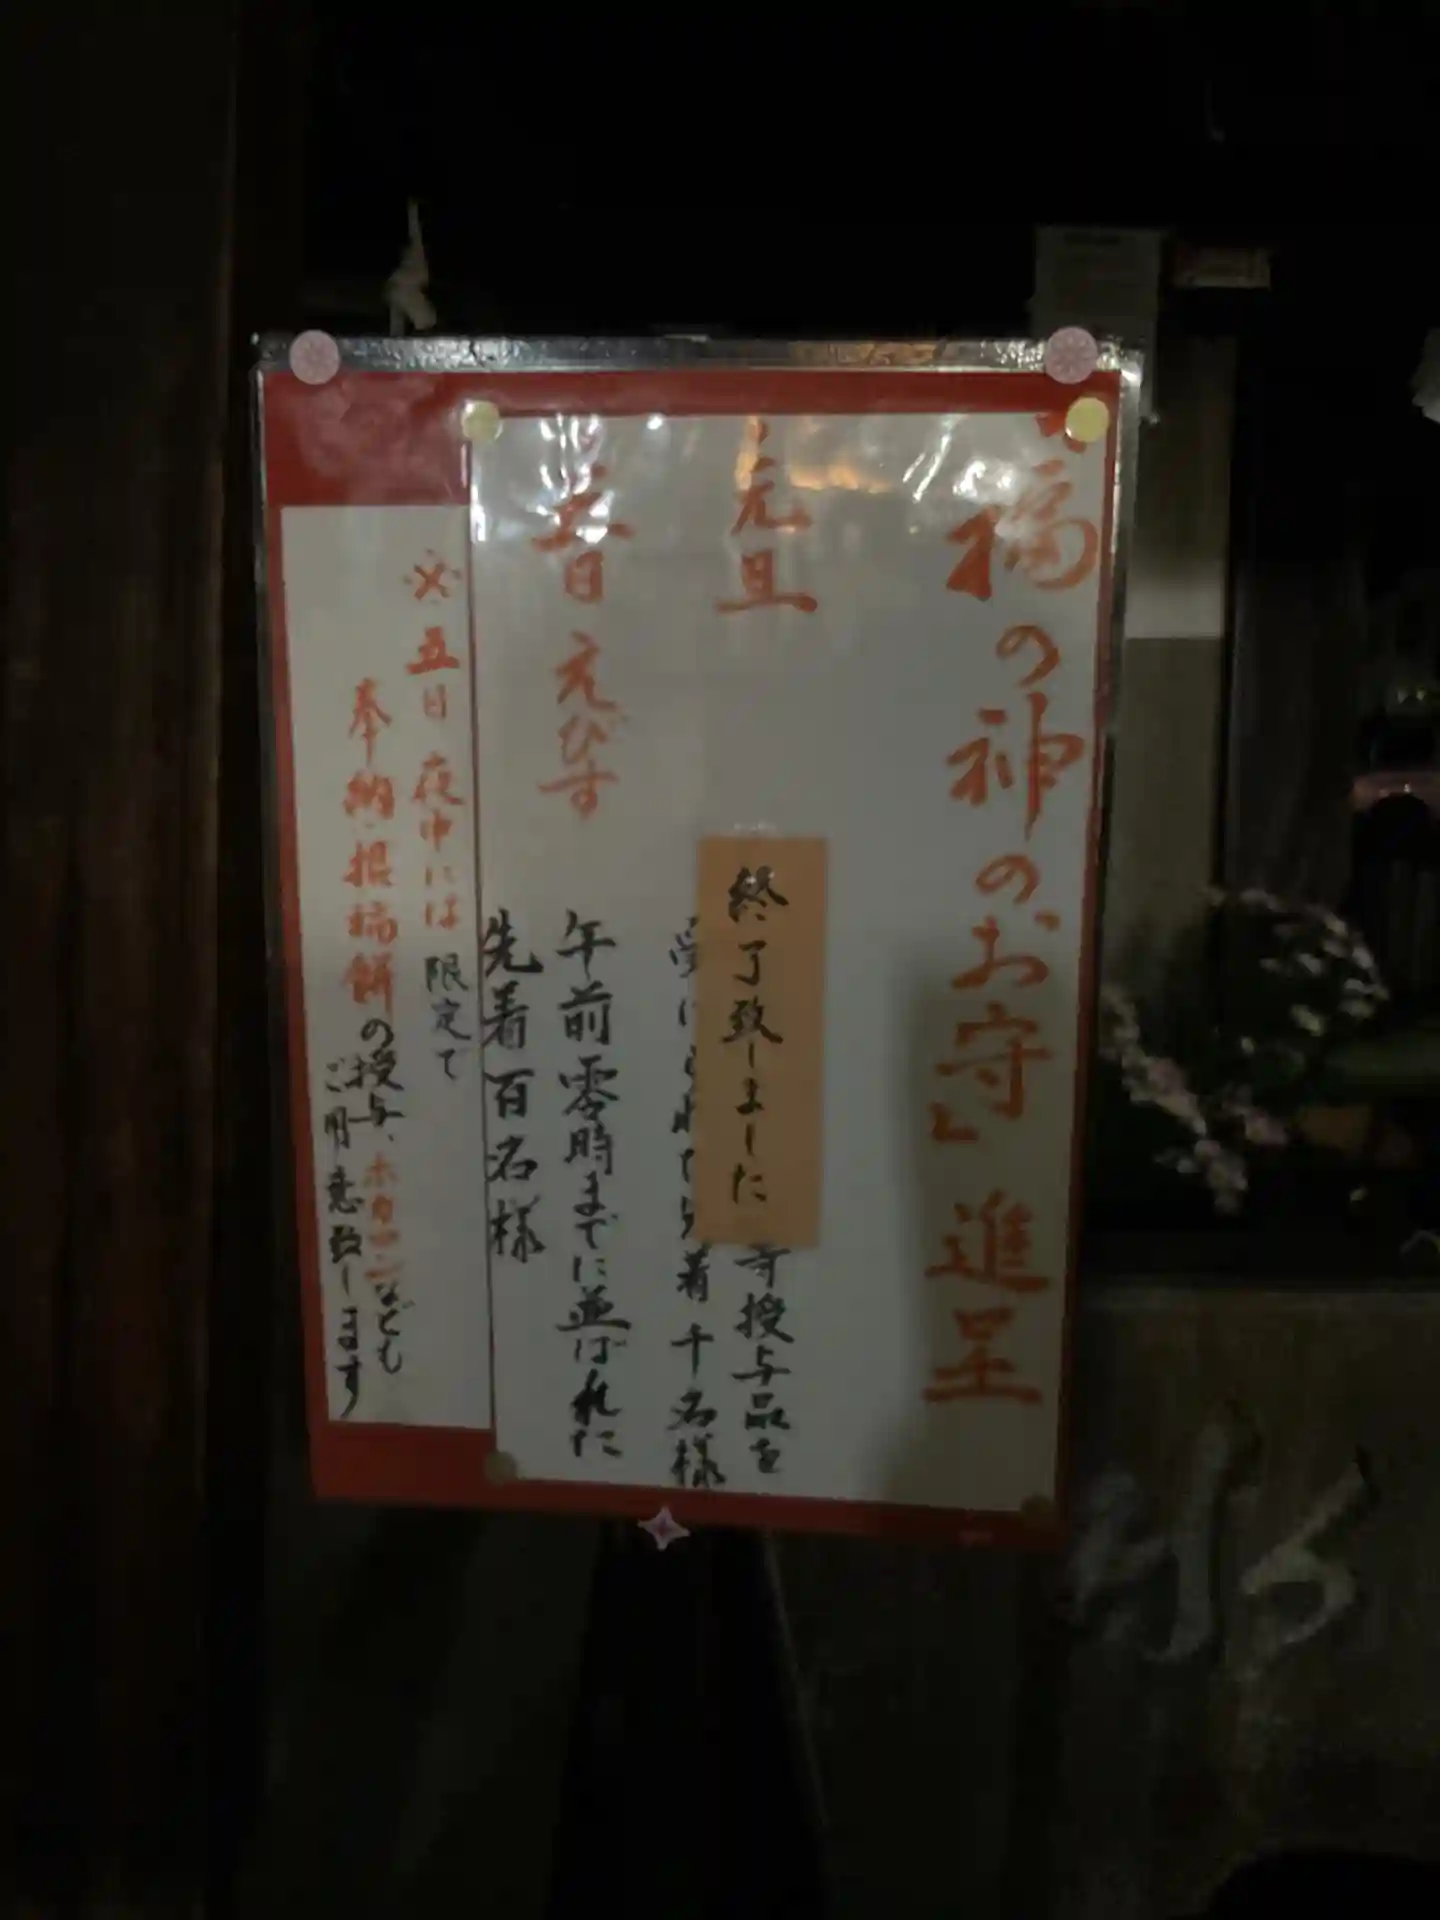 「福の神のお守」進呈
元旦
終了致しました
等授与品を
先着千名様
えびす
午前零時までに並ばれた
先着百名様
※五日夜中には限定で
奉納・振福餅の授与、ホカロンなども
ご用意致します